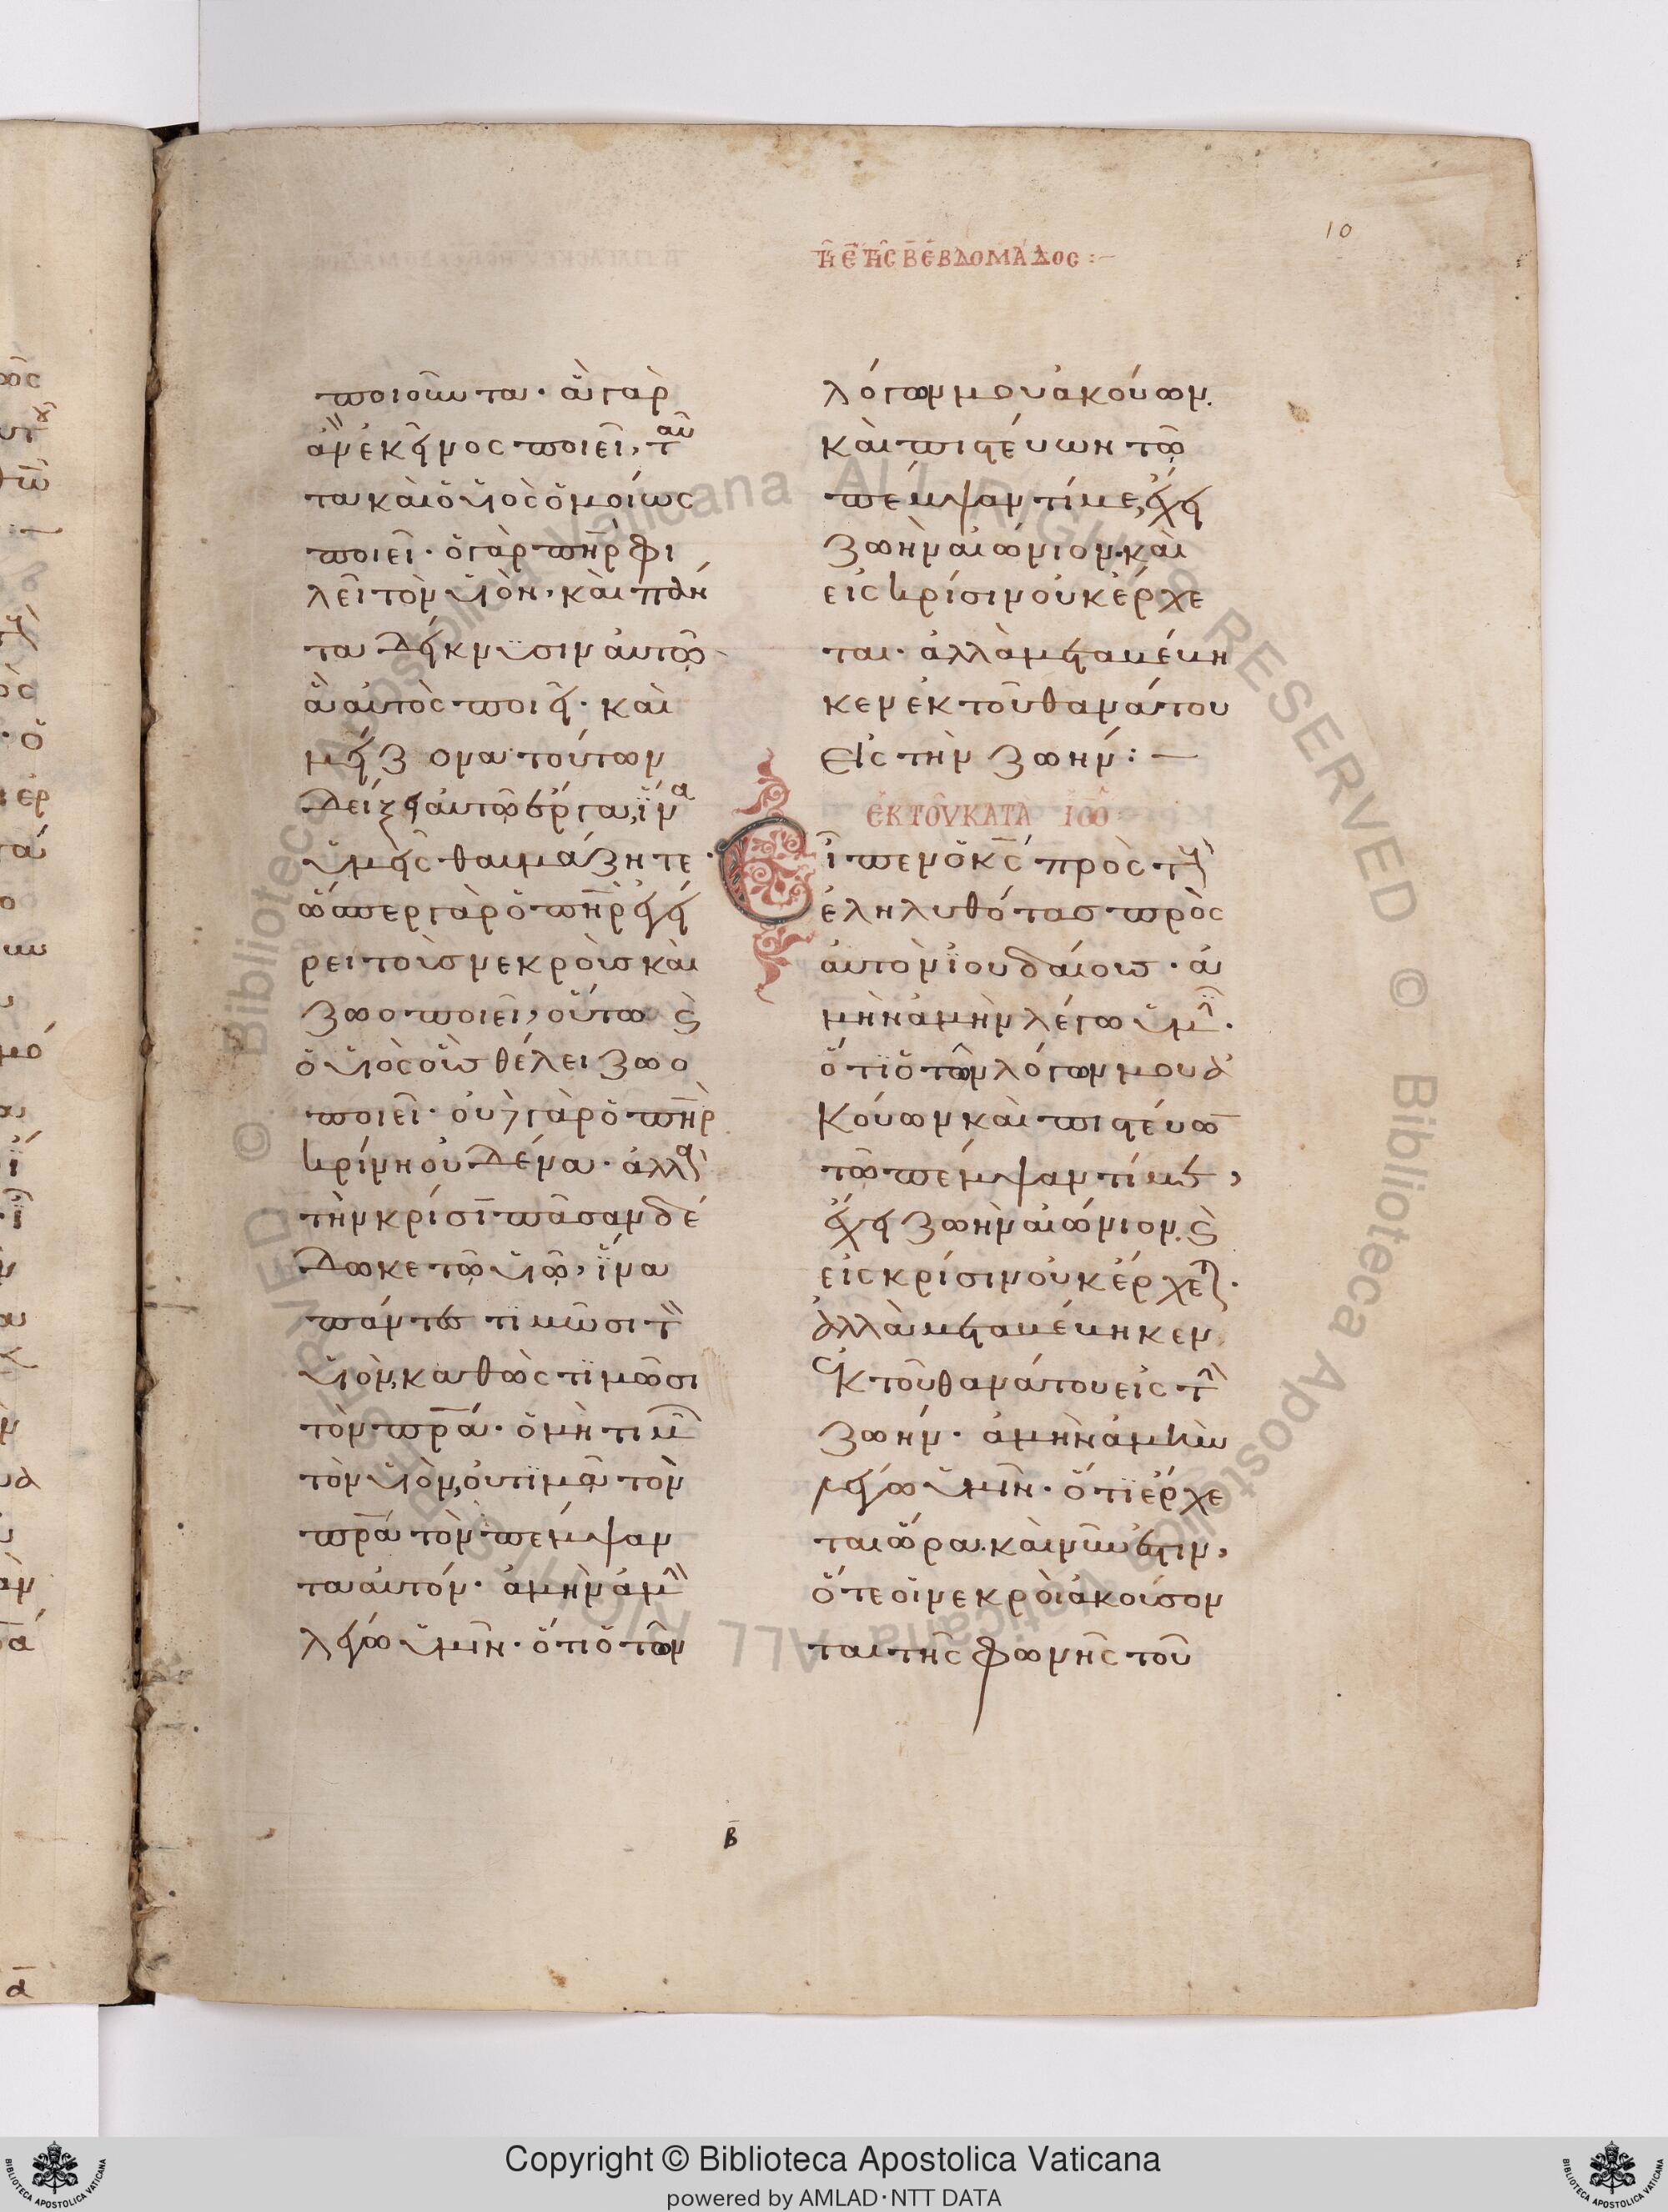 10
τῇ ε̄ τῆς β̄ ἑβδομάδος :—
ποιοῦντα · ἃ γὰρ
ἂν ἐκεῖνος ποιεῖ, ταῦ
τα καὶ ὁ υἱὸς ὁμοίως
ποιεῖ · ὁ γὰρ π̄η̄ρ̄ φι
λεῖ τὸν υἱὸν · καὶ πάν
τα δείκνυσιν αὐτῷ
ἃ αὐτὸς ποιεῖ · καὶ
μείζονα τούτων
δείξει αὐτῷ ἔργα, ἵνα
ὑμεῖς θαυμάζητε ·
ὥσπερ γὰρ ὁ π̄η̄ρ̄ ἐγεί
ρει τοὺς νεκροὺς καὶ
ζωοποιεῖ, οὕτω ϗ̀
ὁ υἱὸς οὓς θέλει ζωο
ποιεῖ · οὐδὲ γὰρ ὁ π̄η̄ρ̄
κρίνει οὐδένα · ἀλλὰ
τὴν κρίσῑ πᾶσαν δέ
δωκε τῷ υἱῷ, ἵνα
πάντες τιμῶσι τὸν
υἱὸν, καθὼς τιμῶσι
τὸν π̄ρ̄ᾱ · ὁ μὴ τιμῶν
τὸν υἱὸν, οὐ τιμᾷ τὸν
π̄ρ̄ᾱ τὸν πέμψαν
τα αὐτόν · ἀμὴν ἀμὴν
λέγω ὑμῖν · ὅτι ὁ τῶν
λόγων μου ἀκούων.
καὶ πιστεύων τῷ
πέμψαντί με, ἔχει
ζωὴν αἰώνιον. καὶ
εἰς κρίσιν οὐκ ἔρχε
ται · ἀλλὰ μεταβέβη
κεν ἐκ τοῦ θανάτου
εἰς τὴν ζωήν : —
ἐκ τοῦ κατὰ Ἰω
Εἶπεν ὁ κ̄ς̄ πρὸς τοὺς
ἐληλυθότας πρὸς
αὐτὸν ἰουδαίους · ἀ
μὴν ἀμὴν λέγω ὑμῖν ·
ὅτι ὁ τῶν λόγων μου ἀ
κούων καὶ πιστεύω̄
τῷ πέμψαντί με,
ἔχει ζωὴν αἰώνιον. ϗ̀
εἰς κρίσιν οὐκ ἔρχεται ·
ἀλλὰ μεταβέβηκεν
ἐκ τοῦ θανάτου εἰς τὴν
ζωήν · ἀμὴν ἀμὴν
λέγω ὑμῖν · ὅτι ἔρχε
ται ὥρα. καὶ νῦν ἐστιν,
ὅτε οἱ νεκροὶ ἀκούσον
ται τῆς φωνῆς τοῦ
β̄
ᾱ
Copyright © Biblioteca Apostolica Vaticana
powered by AMLAD·NTT DATA